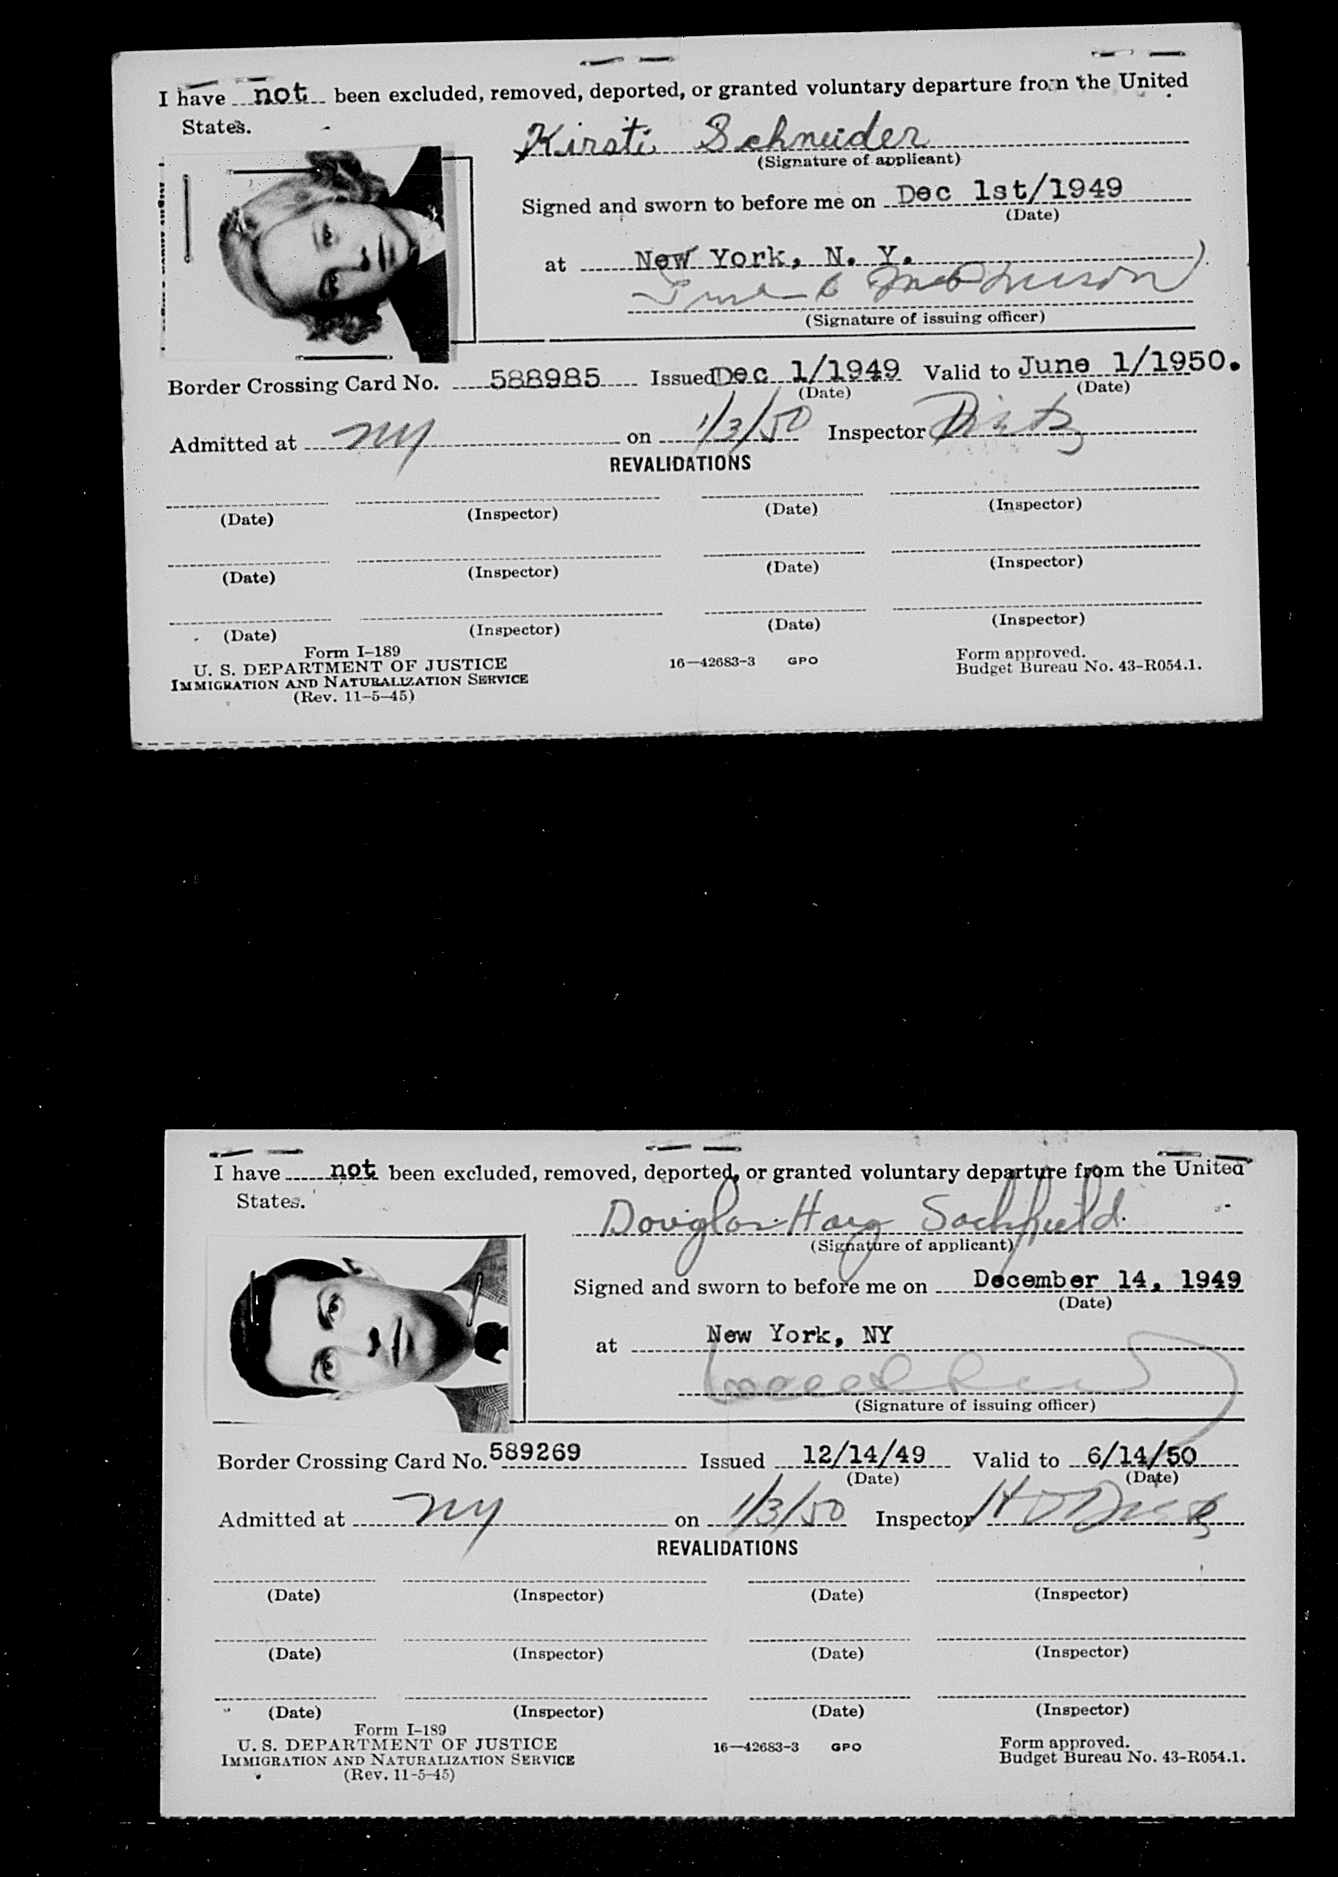 I have not been excluded, removed, deported, or granted voluntary departure from the United
States.
Kirsti Schneider
(Signature of applicant)
Signed and sworn to before me on Dec 1st/1949
(Date)
at New York, N. Y.
(Signature of issuing officer)
Border Crossing Card No. 588985 Issued Dec 1/1949 Valid to June 1/1950.
(Date) (Date)
Admitted at NY on 1/3/50 Inspector
REVALIDATIONS
(Date) (Inspector) (Date) (Inspector)
(Date) (Inspector) (Date) (Inspector)
(Date) (Inspector) (Date) (Inspector)
Form I-189
U. S. DEPARTMENT OF JUSTICE
IMMIGRATION AND NATURALIZATION SERVICE
(Rev. 11-5-45)
16—42683-3 GPO
Form approved.
Budget Bureau No. 43-R054.1.
I have not been excluded, removed, deported, or granted voluntary departure from the United
States.
Douglas Haig Sackfield.
(Signature of applicant)
Signed and sworn to before me on December 14, 1949
(Date)
at New York, NY
(Signature of issuing officer)
Border Crossing Card No. 589269 Issued 12/14/49 Valid to 6/14/50
(Date) (Date)
Admitted at NY on 1/3/50 Inspector
REVALIDATIONS
(Date) (Inspector) (Date) (Inspector)
(Date) (Inspector) (Date) (Inspector)
(Date) (Inspector) (Date) (Inspector)
Form I-189
U. S. DEPARTMENT OF JUSTICE
IMMIGRATION AND NATURALIZATION SERVICE
(Rev. 11-5-45)
16—42683-3 GPO
Form approved.
Budget Bureau No. 43-R054.1.